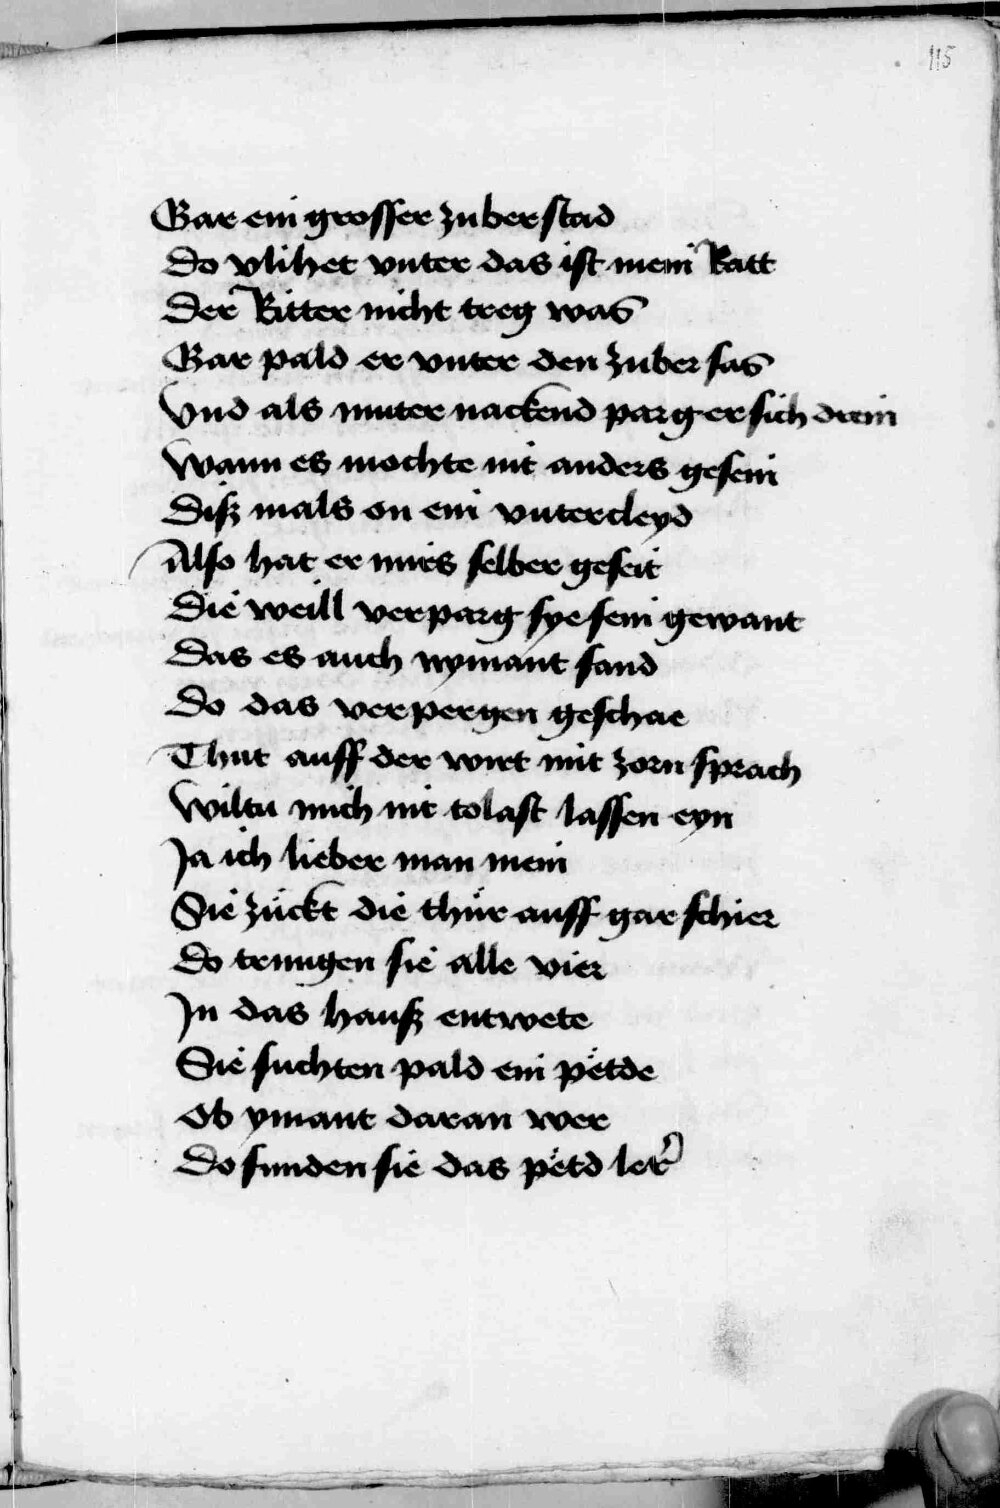 115
Gar ein grosser zuber stad
Do vlihet vnter das ist mein Ratt
Der Ritter nicht treg was
Gar pald er vnter den zuber sas
Vnd als muter nackend parg er sich drein
Wann es mochte nit anders gesein
Diß mals on ein vntercleyd
Also hat er mirs selber geseit
Die weill verparg sye sein gewant
Das es auch nymant fand
Do das verpergen geschae
Thut auff der wirt mit zorn sprach
Wiltu mich nit tolast lassen eyn
Ja ich lieber man mein
Sie zückt die thür auff gar schier
Do trungen sie alle vier
Jn das hauß entwete
Sie suchten pald ein petde
Ob ymant daran wer
Do funden sie das petd ler